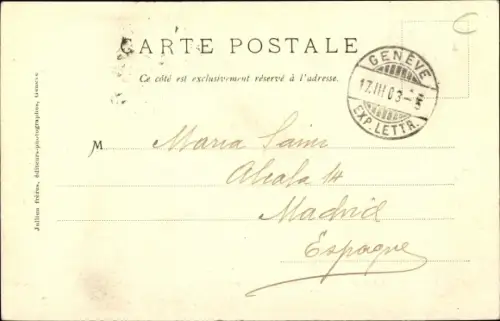 CARTE POSTALE
Ce côté est exclusivement réservé à l'adresse.
GENÈVE
17.III.03
EXP. LETTR.
M Maria Saini
Alcala 14
Madrid
Espagne
Jullien frères, éditeurs-photographes, Genève